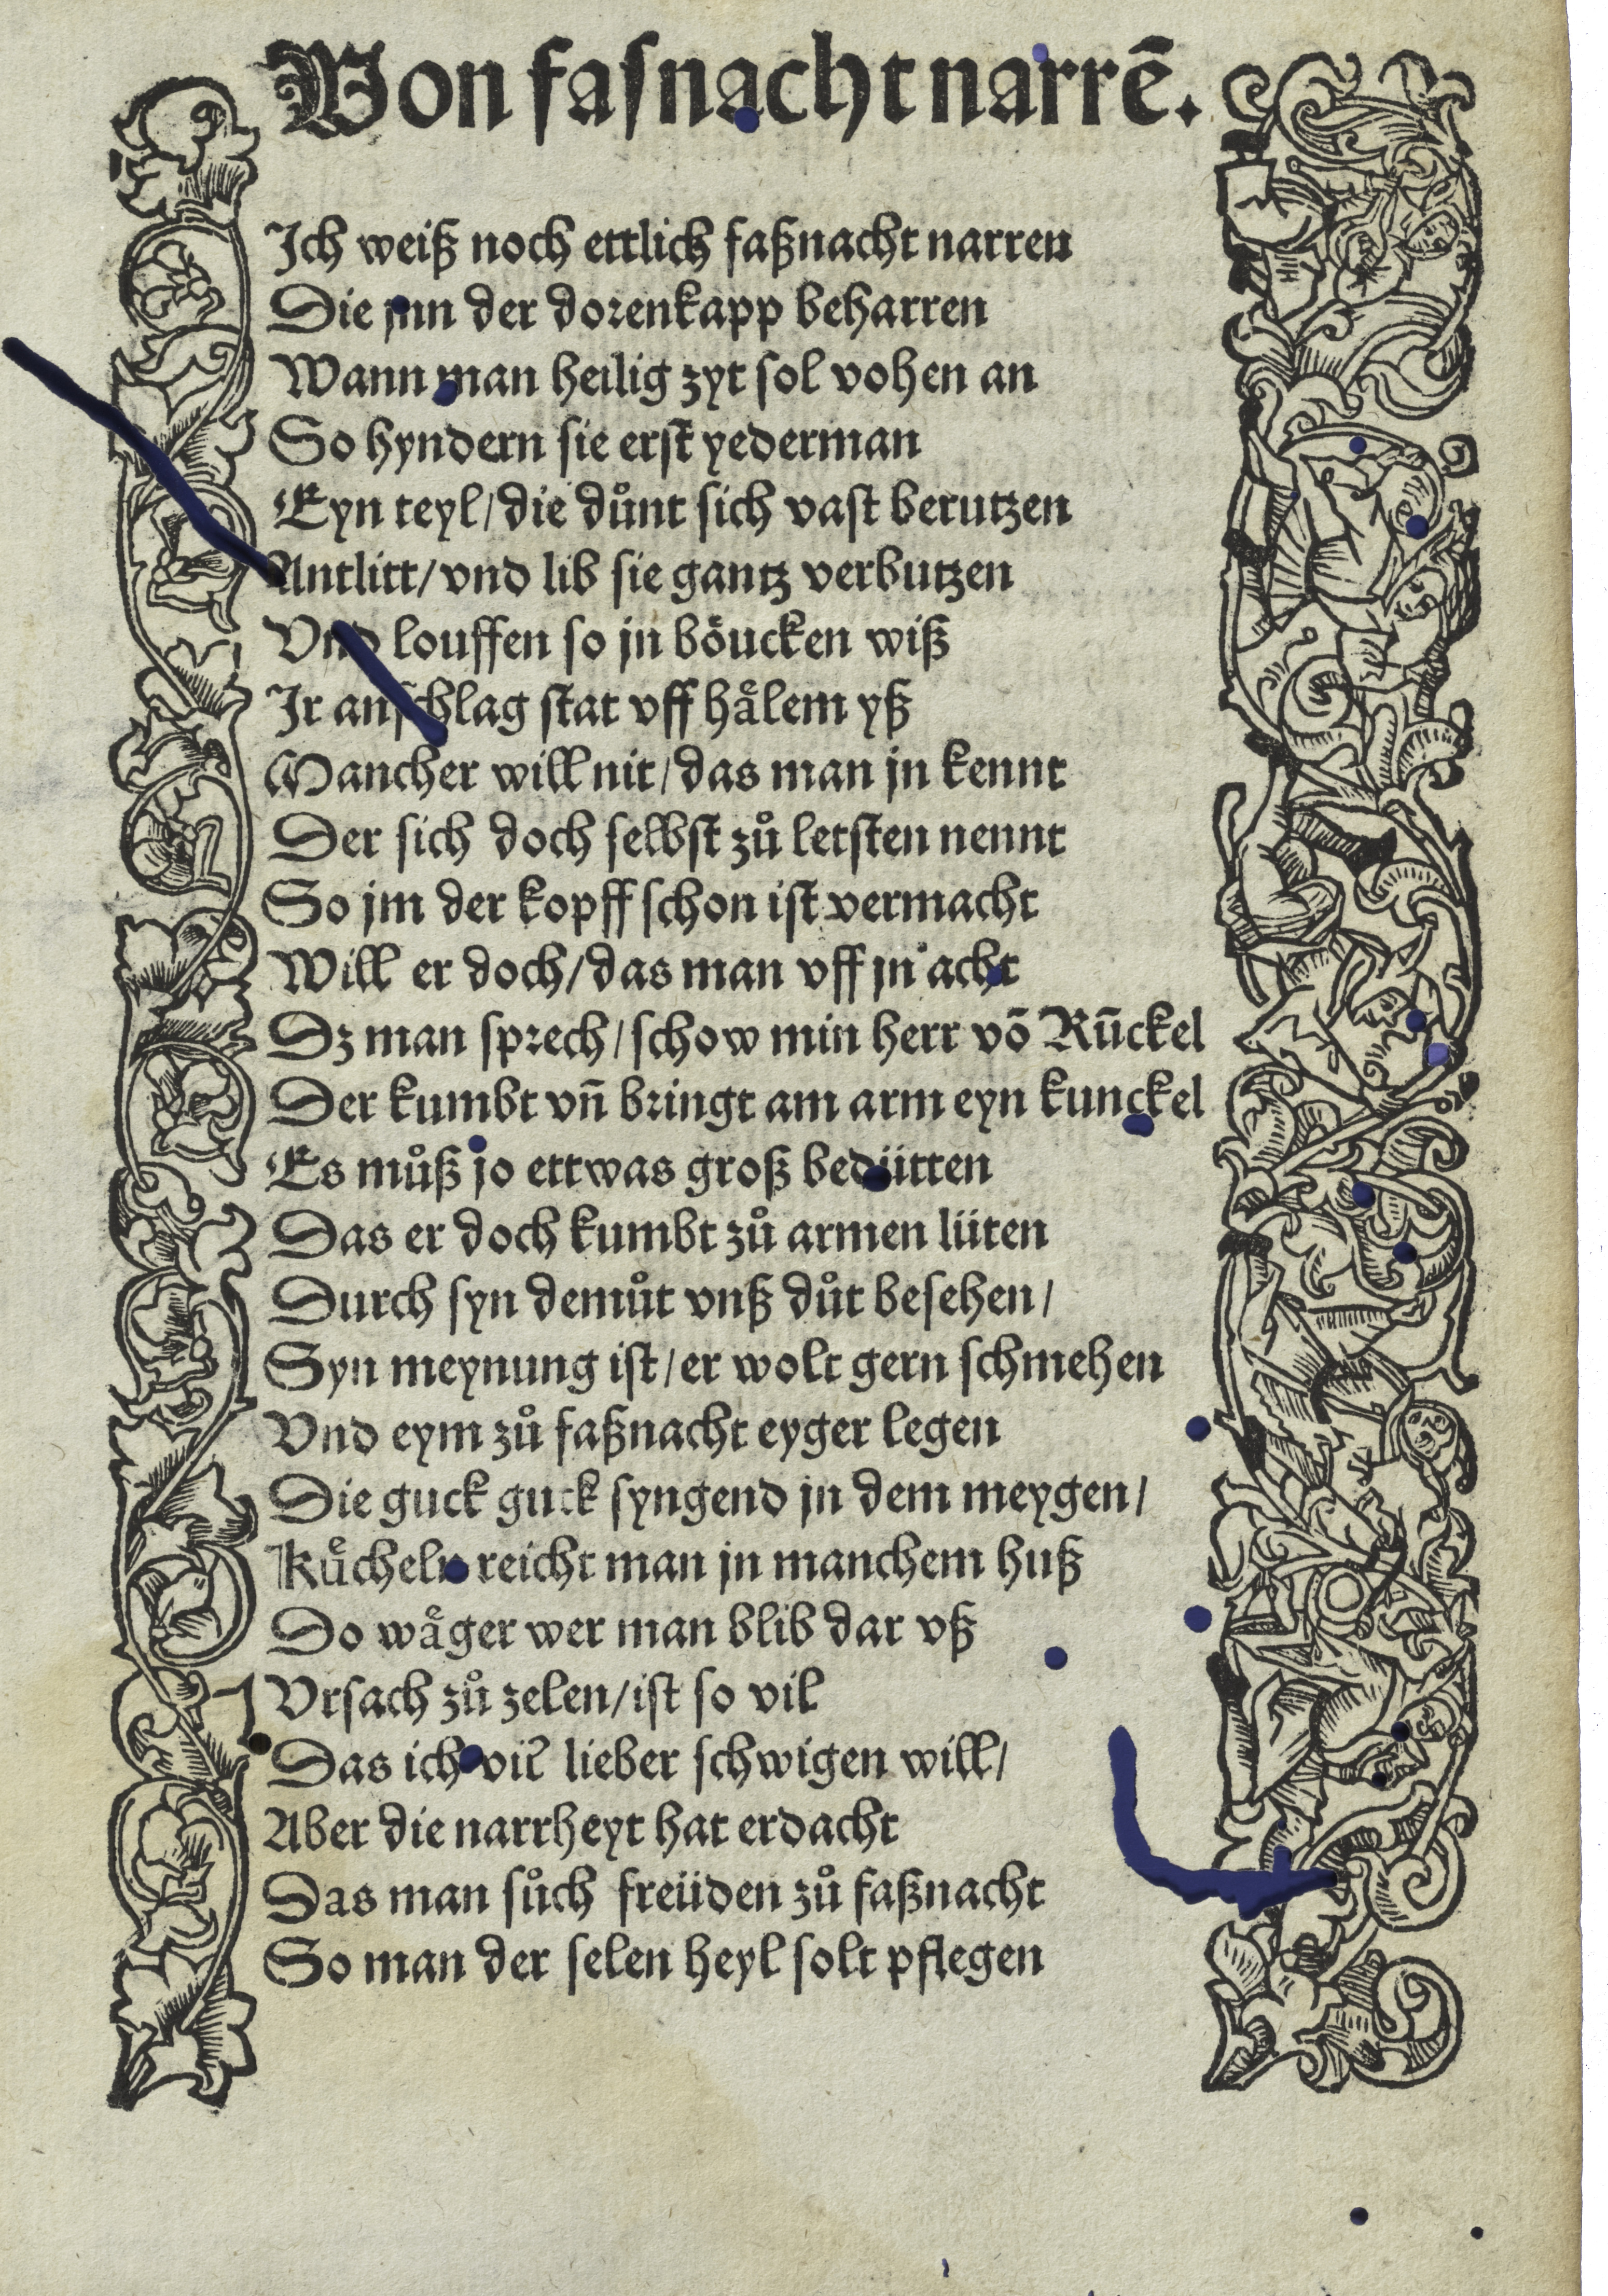 Von fasnacht narrē.
Ich weiß noch ettlich faßnacht narren
Die jnn der dorenkapp beharren
Wann man heilig zyt sol vohen an
So hyndern sie erst yederman
Eyn teyl/die duͦnt sich vast berutzen
Antlitt/vnd lib sie gantz verbutzen
Vnd louffen so jn boͤucken wiß
Ir anschlag stat vff haͤlem yß
Mancher will nit/das man jn kennt
Der sich doch selbst zuͦ letsten nennt
So jm der kopff schon ist vermacht
Will er doch/das man vff jn acht
Dz man sprech/schow min herr vō Rūckel
Der kumbt vn̄ bringt am arm eyn kunckel
Es muͦß jo ettwas groß bedütten
Das er doch kumbt zuͦ armen lüten
Durch syn demuͦt vnß duͦt besehen/
Syn meynung ist/er wolt gern schmehen
Vnd eym zuͦ faßnacht eyger legen
Die guck guck syngend jn dem meygen/
Kuͤcheln reicht man jn manchem huß
Do waͤger wer man blib dar vß
Vrsach zuͦ zelen/ist so vil
Das ich vil lieber schwigen will/
Aber die narrheyt hat erdacht
Das man suͦch freüden zuͦ faßnacht
So man der selen heyl solt pflegen